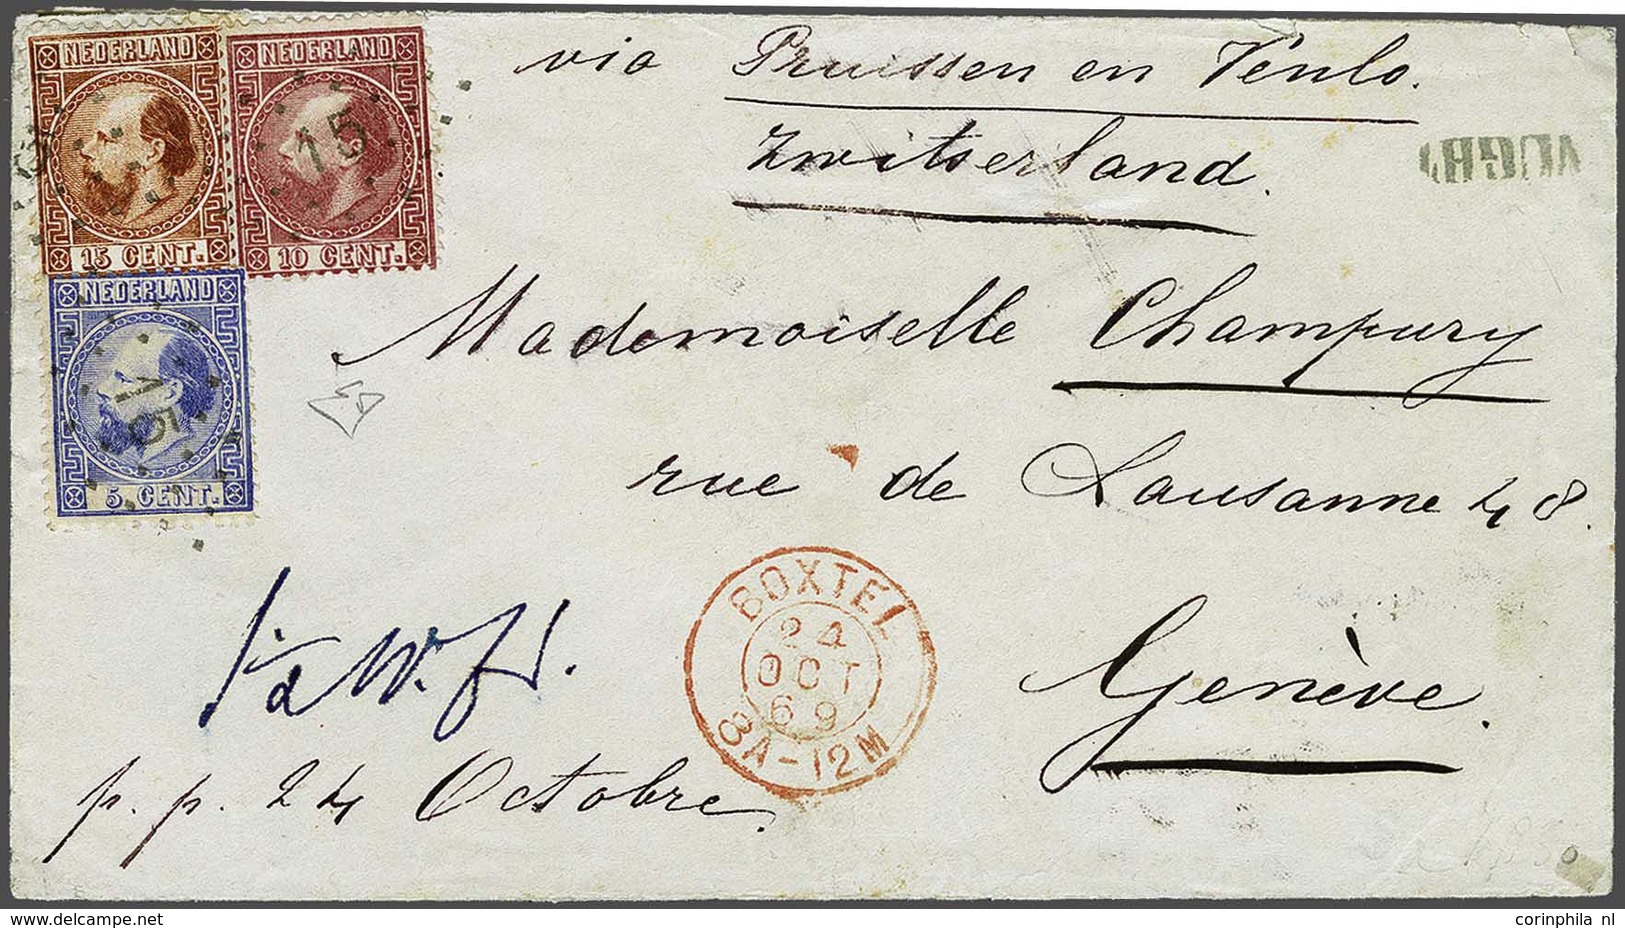 NEDERLAND
15 CENT.
NEDERLAND
15
10 CENT.
NEDERLAND
15
5 CENT.
via Pruissen en Venlo.
Zwitserland.
VUGHT
Mademoiselle Champury
rue de Lausanne 48.
Genève.
BOXTEL
24
OCT
69
8A-12M
p.p. 24 Octobre.
corinphila nl